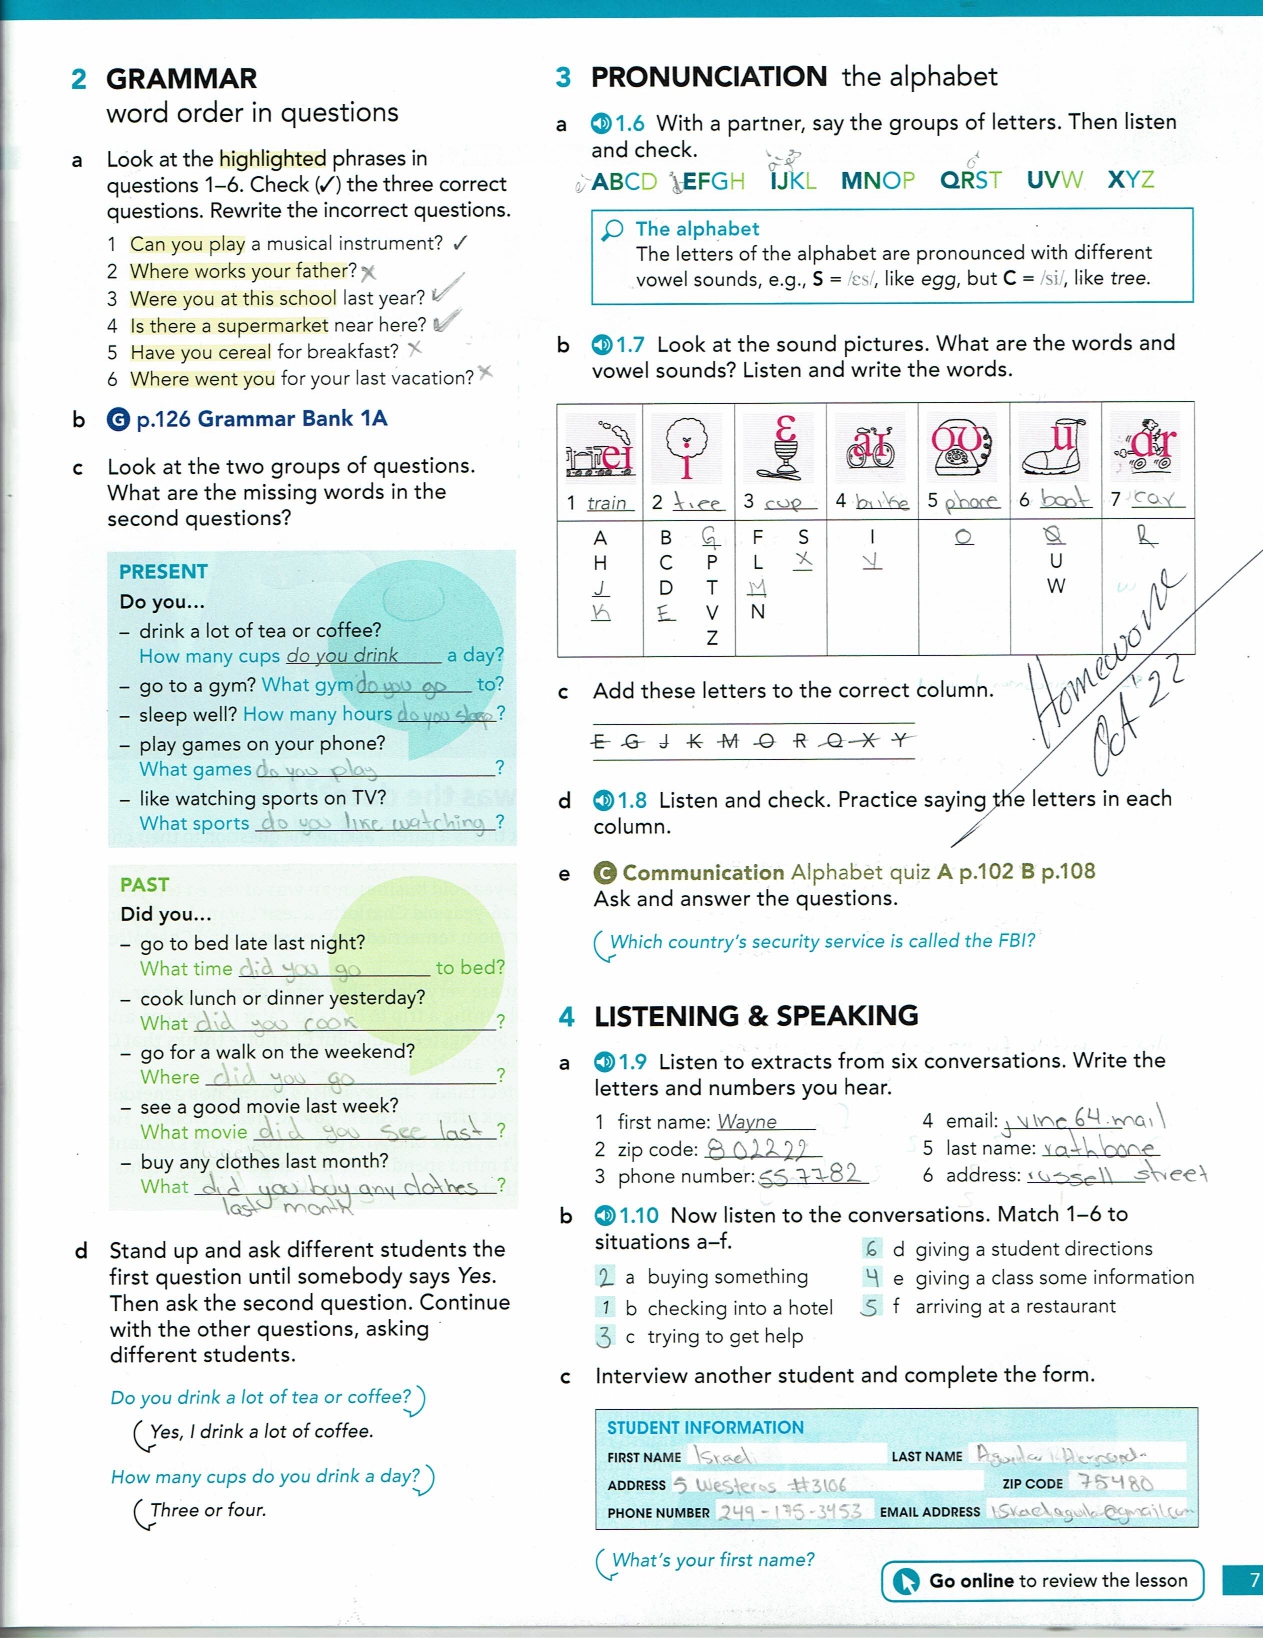 2 GRAMMAR
word order in questions
a Look at the highlighted phrases in
questions 1–6. Check (✓) the three correct
questions. Rewrite the incorrect questions.
1 Can you play a musical instrument? ✓
2 Where works your father? x
3 Were you at this school last year? ✓
4 Is there a supermarket near here? ✓
5 Have you cereal for breakfast? x
6 Where went you for your last vacation? x
b G p.126 Grammar Bank 1A
c Look at the two groups of questions.
What are the missing words in the
second questions?
PRESENT
Do you...
– drink a lot of tea or coffee?
How many cups do you drink a day?
– go to a gym? What gym do you go to?
– sleep well? How many hours do you sleep?
– play games on your phone?
What games do you play ?
– like watching sports on TV?
What sports do you like watching ?
PAST
Did you...
– go to bed late last night?
What time did you go to bed?
– cook lunch or dinner yesterday?
What did you cook ?
– go for a walk on the weekend?
Where did you go ?
– see a good movie last week?
What movie did you see last ?
– buy any clothes last month?
What did you buy any clothes ?
last month
d Stand up and ask different students the
first question until somebody says Yes.
Then ask the second question. Continue
with the other questions, asking
different students.
Do you drink a lot of tea or coffee?
Yes, I drink a lot of coffee.
How many cups do you drink a day?
Three or four.
3 PRONUNCIATION the alphabet
a 1.6 With a partner, say the groups of letters. Then listen
and check.
ABCD EFGH IJKL MNOP QRST UVW XYZ
The alphabet
The letters of the alphabet are pronounced with different
vowel sounds, e.g., S = /ɛs/, like egg, but C = /si/, like tree.
b 1.7 Look at the sound pictures. What are the words and
vowel sounds? Listen and write the words.
eɪ i ɛ aɪ oʊ u ɑr
1 train 2 tree 3 cup 4 buike 5 phone 6 boot 7 car
A B G F S I O Q R
H C P L X Y U
J D T M W
K E V N
Z
Homework
Oct '22
c Add these letters to the correct column.
E G J K M O R Q X Y
d 1.8 Listen and check. Practice saying the letters in each
column.
e C Communication Alphabet quiz A p.102 B p.108
Ask and answer the questions.
Which country's security service is called the FBI?
4 LISTENING & SPEAKING
a 1.9 Listen to extracts from six conversations. Write the
letters and numbers you hear.
1 first name: Wayne 4 email: jvine64.mail
2 zip code: 802222 5 last name: rathbone
3 phone number: 557782 6 address: russell street
b 1.10 Now listen to the conversations. Match 1–6 to
situations a–f.
2 a buying something
1 b checking into a hotel
3 c trying to get help
6 d giving a student directions
4 e giving a class some information
5 f arriving at a restaurant
c Interview another student and complete the form.
STUDENT INFORMATION
FIRST NAME Israel LAST NAME Aguilar
ADDRESS 5 Westeros #3106 ZIP CODE 75480
PHONE NUMBER 249-175-3453 EMAIL ADDRESS
What's your first name?
Go online to review the lesson
7